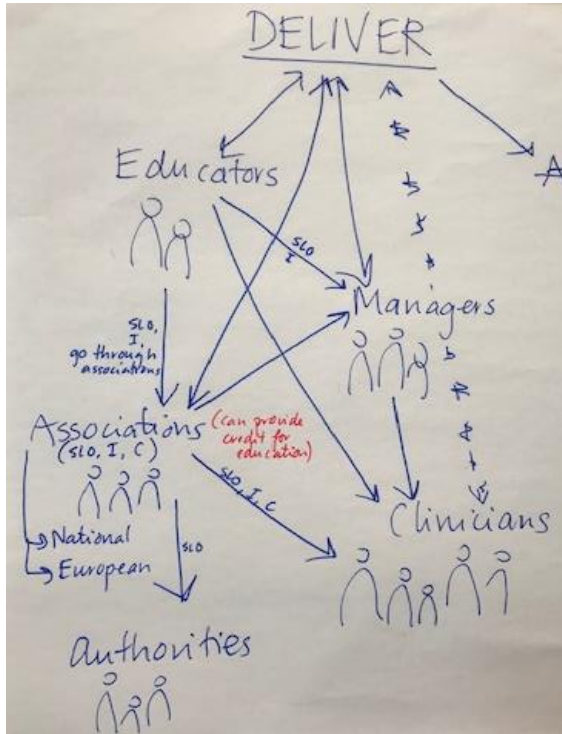 DELIVER
Educators
A
SLO
I
Managers
SLO,
I,
go through
associations
Associations
(SLO, I, C)
(can provide
credit for
education)
SLO, I, C
Clinicians
National
European
SLO
authorities